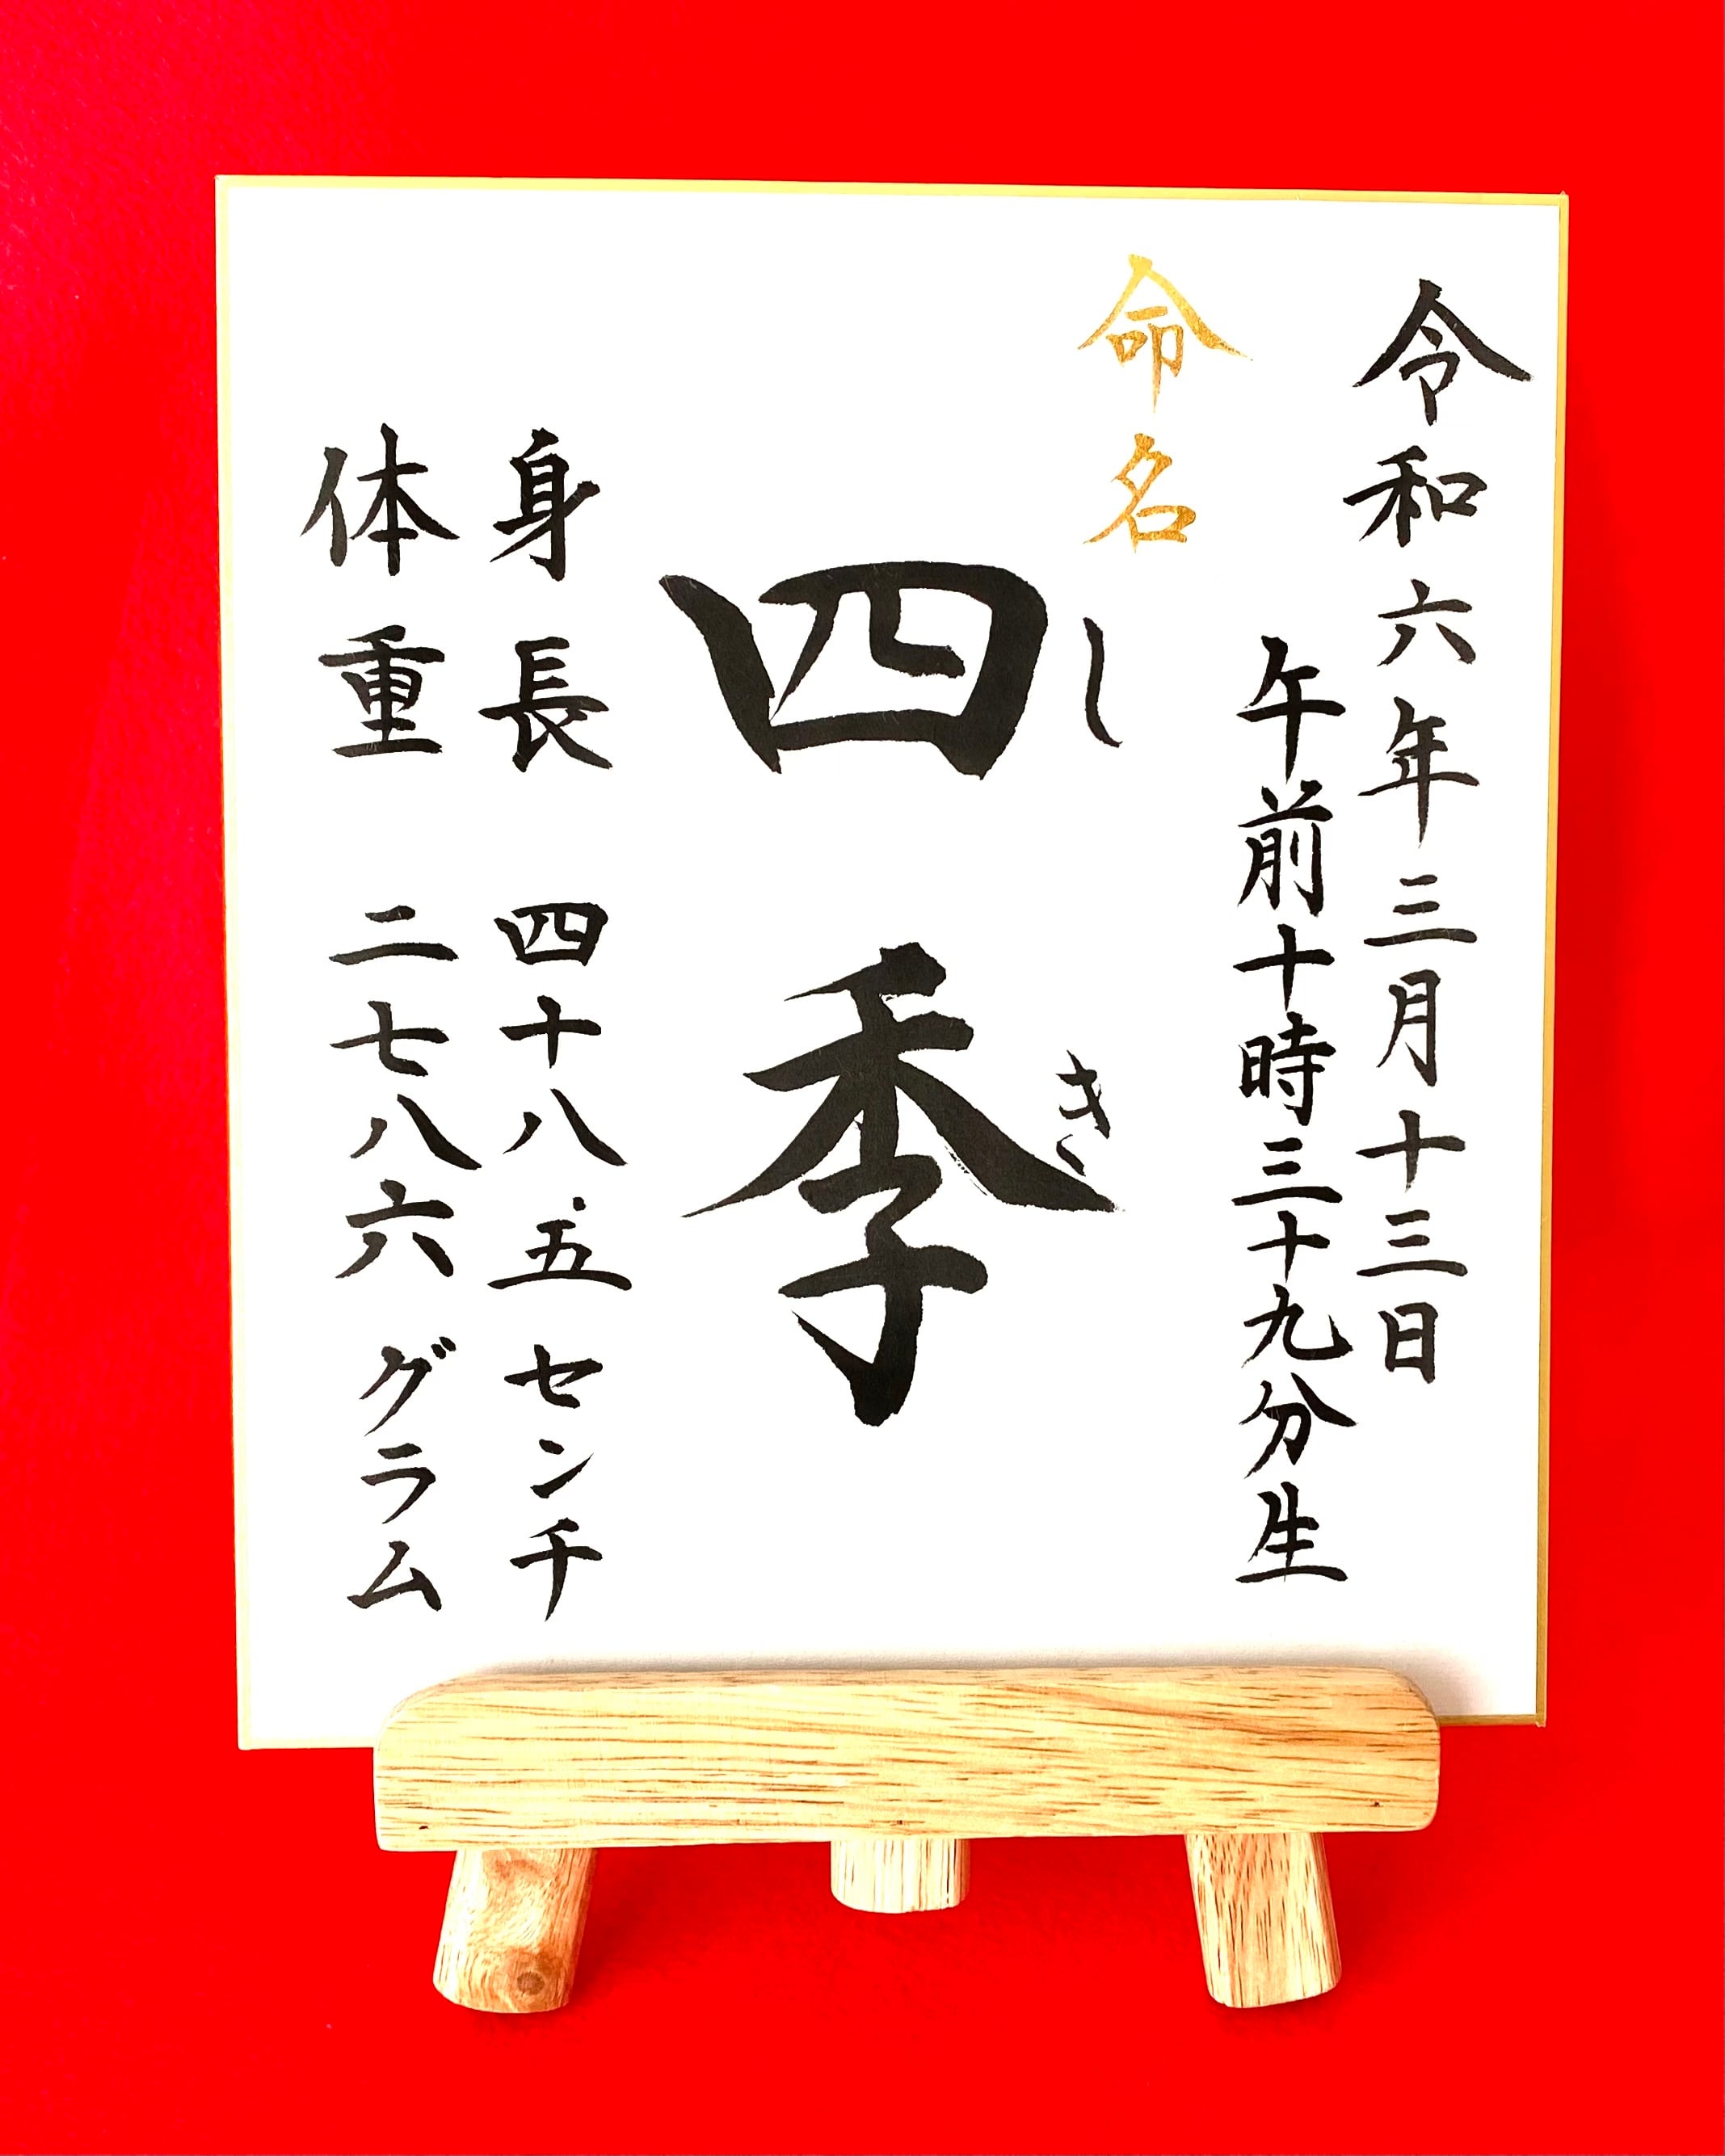 令和六年三月十三日
午前十時三十九分生
命名
しき
四季
身長 四十八.五 センチ
体重 二七八六 グラム